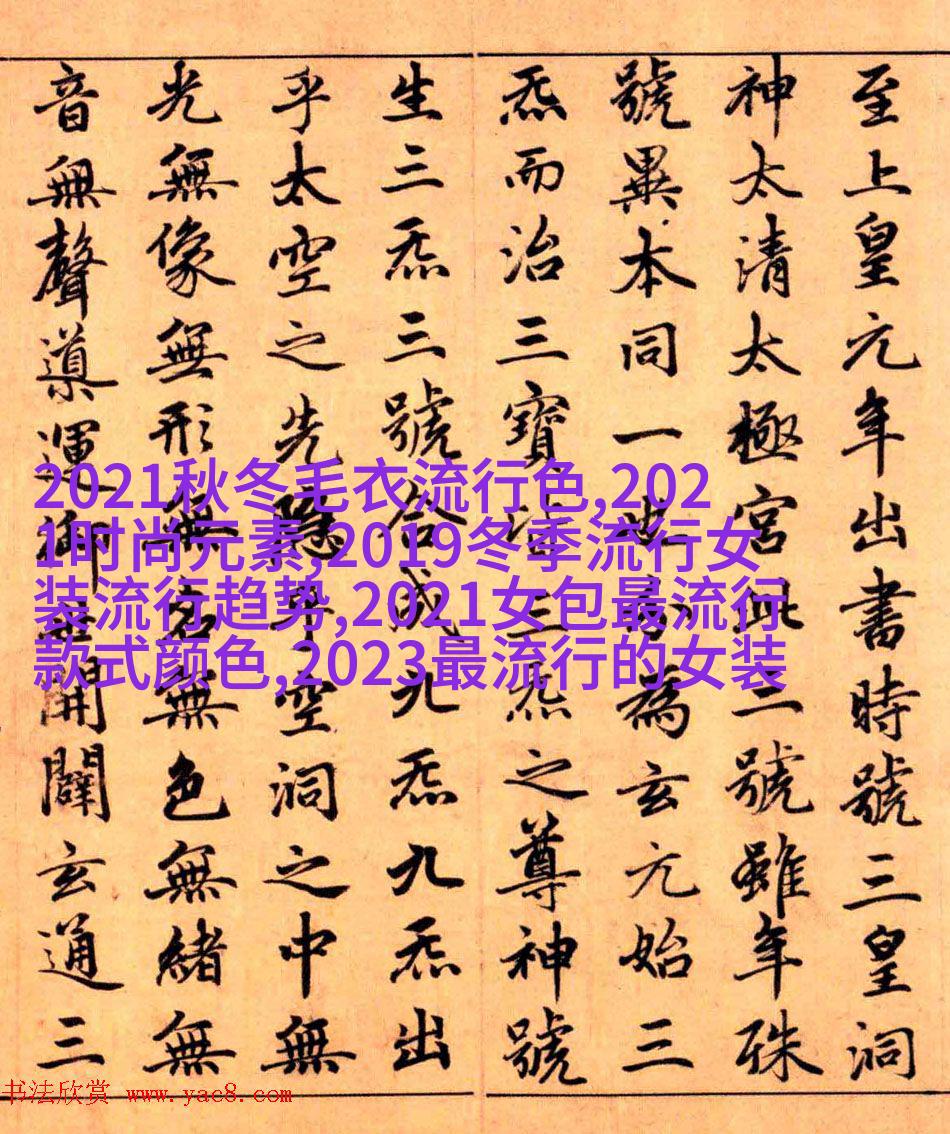 至上皇元年出書時號三皇洞
神太清太極宮此三號雖年殊
號異本同一也分為玄元始三
炁而治三寶皆三炁之尊神號
生三炁三號合成九炁九炁出
乎太空之先隱乎空洞之中無
光無像無形無名無色無緒無
音無聲導運御世開闢玄通三
2021秋冬毛衣流行色,202
1时尚元素,2019冬季流行女
装流行趋势,2021女包最流行
款式颜色,2023最流行的女装
书法欣赏 www.yac8.com